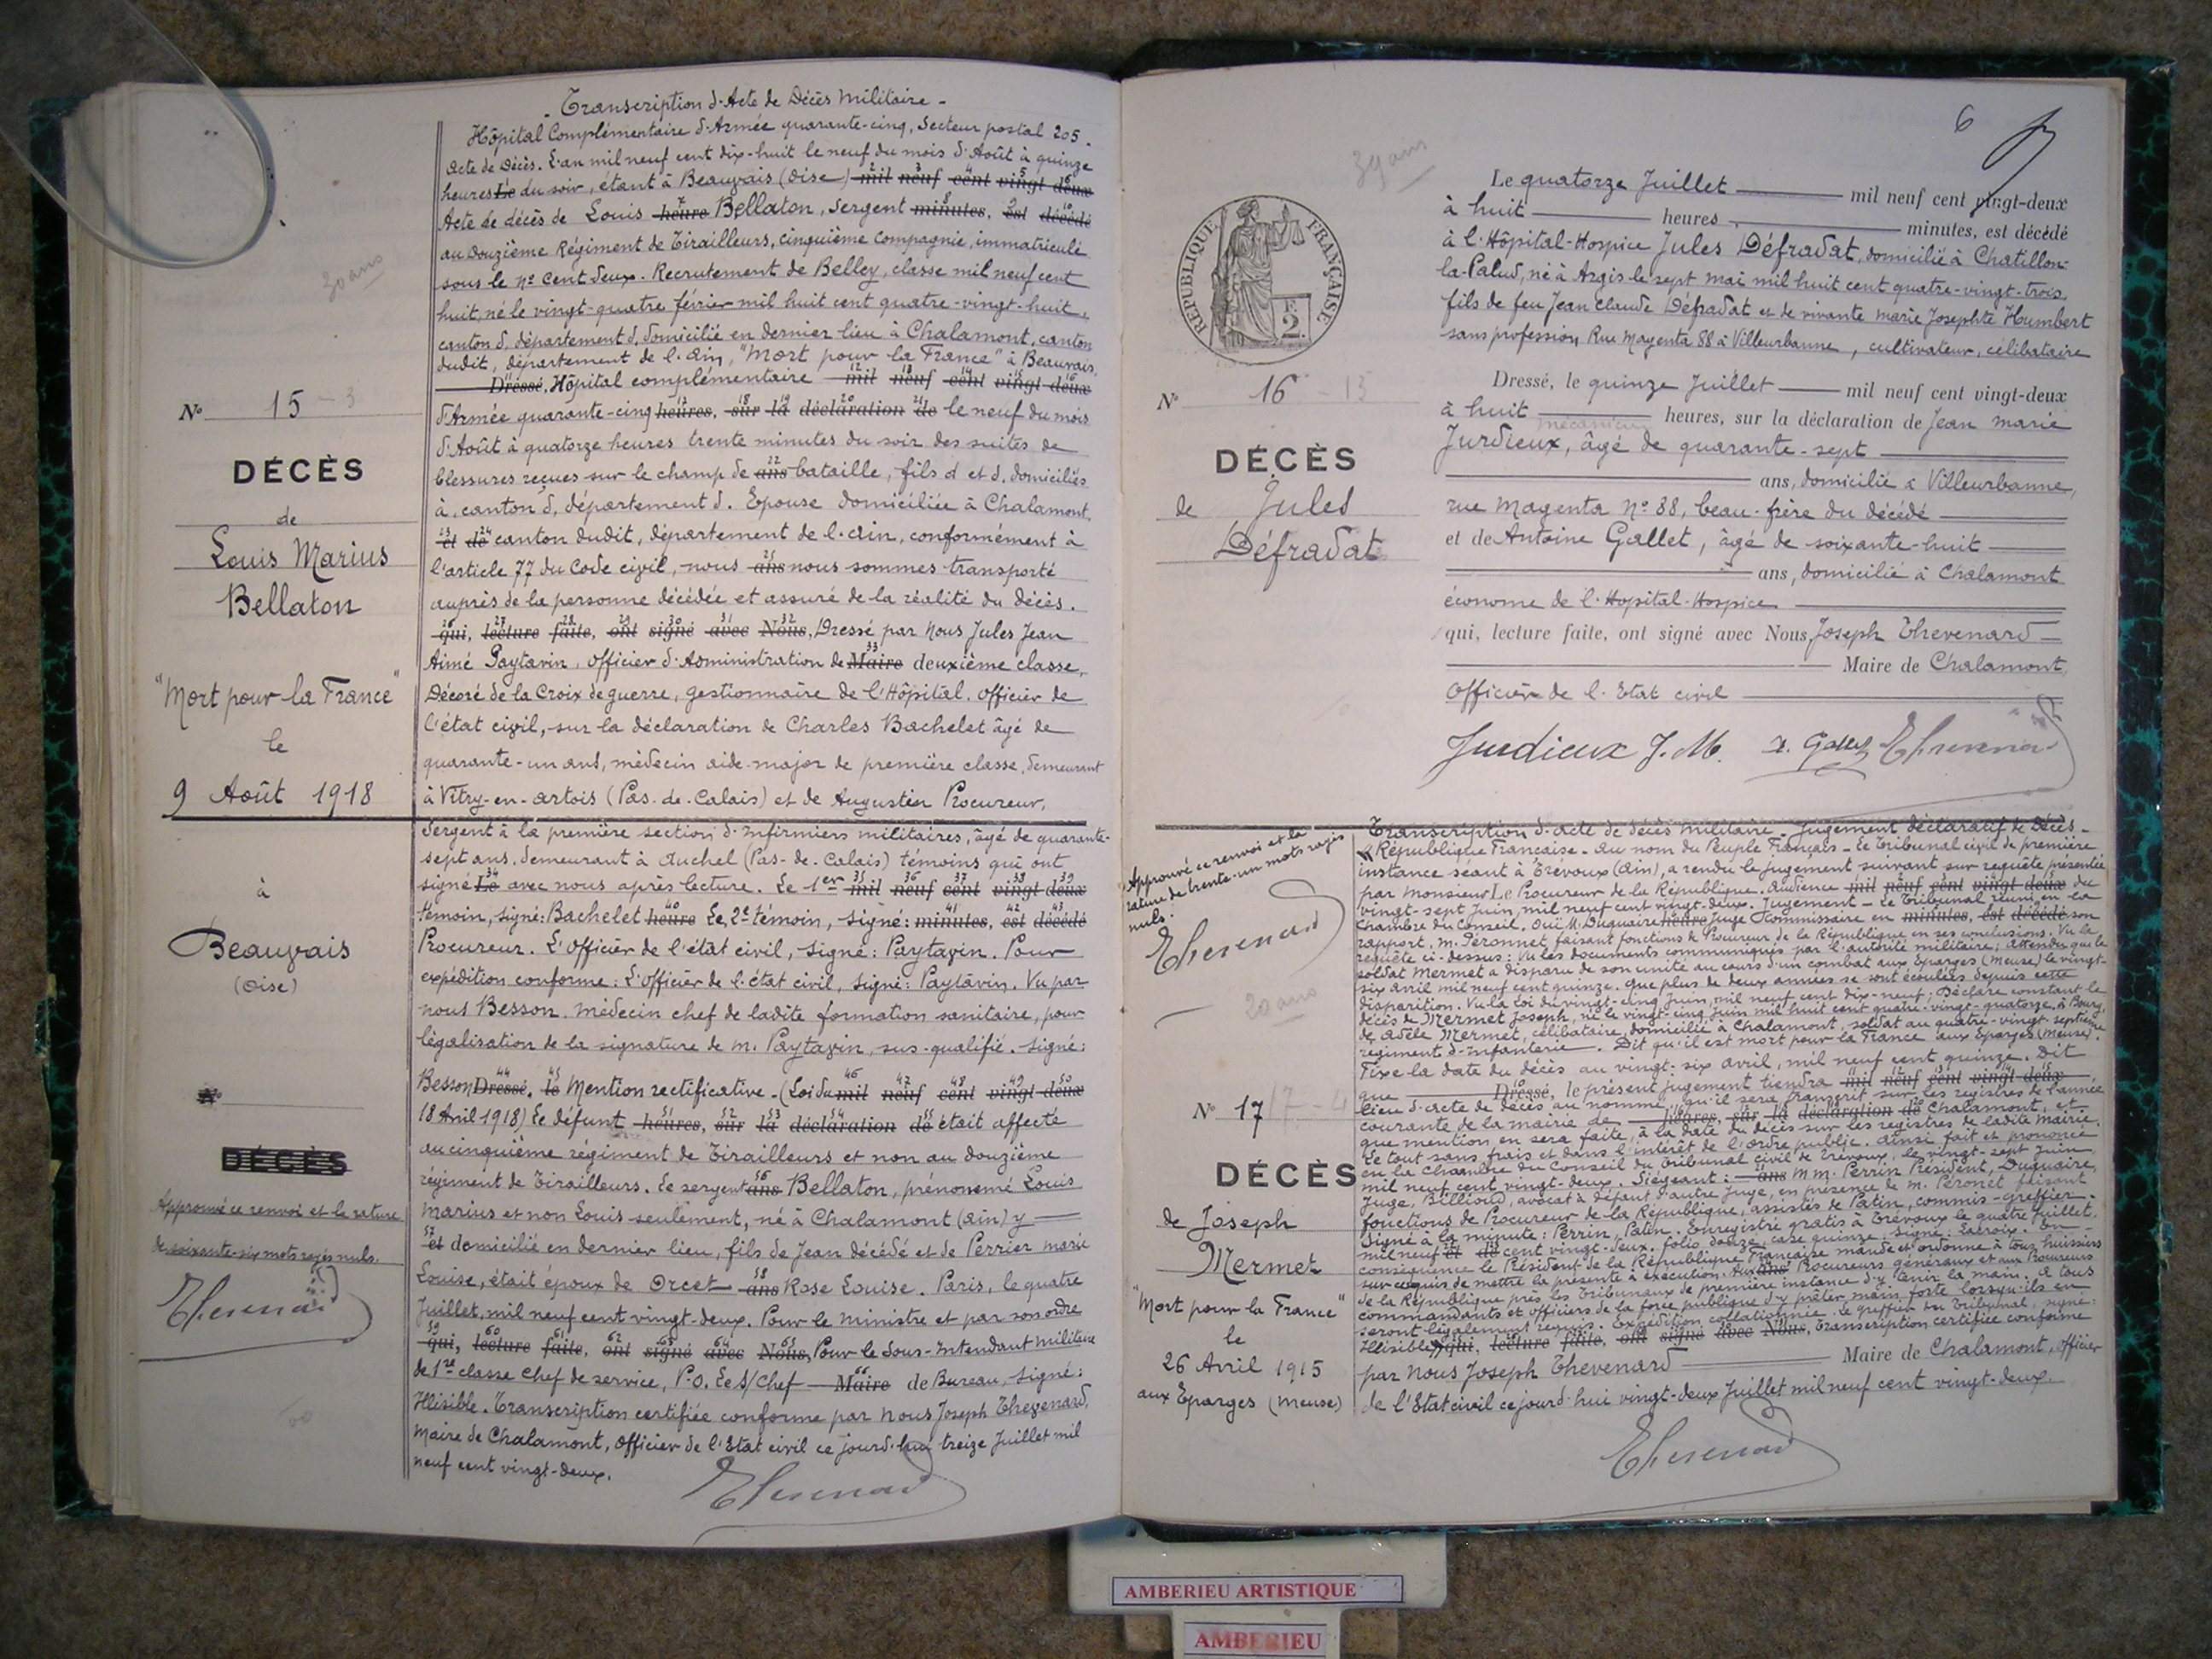 Transcription d'Acte de Décès Militaire -
Hôpital Complémentaire d'Armée quarante-cinq, Secteur postal 205.
Acte de Décès. L'an mil neuf cent dix-huit le neuf du mois d'Août à quinze
heures Le du soir, étant à Beauvais (Oise) mil neuf cent vingt deux
Acte de décès de Louis heure Bellaton, Sergent minutes, est décédé
au Douzième Régiment de Tirailleurs, cinquième Compagnie, immatriculé
sous le N° Cent deux. Recrutement de Belley, classe mil neuf cent
huit, né le vingt-quatre février mil huit cent quatre-vingt-huit,
canton d, département d, domicilié en dernier lieu à Chalamont, canton
dudit, département de l'Ain, "Mort pour la France" à Beauvais,
Dressé, Hôpital complémentaire mil neuf cent vingt deux
d'Armée quarante-cinq heures, sur la déclaration de le neuf du mois
d'Août à quatorze heures trente minutes du soir des suites de
blessures reçues sur le champ de ans bataille, fils d et d, domiciliés
à, canton d, département d. Epouse domiciliée à Chalamont,
et de canton dudit, département de l'Ain, conformément à
l'article 77 du Code civil, nous ans nous sommes transporté
auprès de la personne décédée et assuré de la réalité du décès.
qui, lecture faite, ont signé avec Nous, Dressé par Nous Jules Jean
Aimé Paytavin, Officier d'Administration de Maire deuxième classe,
Décoré de la Croix de guerre, gestionnaire de l'Hôpital, Officier de
l'état civil, sur la déclaration de Charles Bachelet âgé de
quarante-un ans, médecin aide-major de première classe, demeurant
à Vitry-en-Artois (Pas-de-Calais) et de Augustin Procureur,
Sergent à la première section d'Infirmiers militaires, âgé de quarante-
sept ans, demeurant à Auchel (Pas-de-Calais) témoins qui ont
signé Le avec nous après lecture. Le 1er mil neuf cent vingt deux
témoin, signé: Bachelet heure Le 2e témoin, signé: minutes, est décédé
Procureur. L'Officier de l'état civil, signé: Paytavin. Pour
expédition conforme: L'Officier de l'état civil, signé: Paytavin. Vu par
nous Besson, médecin chef de ladite formation sanitaire, pour
légalisation de la signature de M. Paytavin, sus-qualifié. Signé:
Besson Dressé, le Mention rectificative. (Loi du mil neuf cent vingt deux
18 Avril 1918) Le défunt heures, sur la déclaration de était affecté
au cinquième régiment de Tirailleurs et non au douzième
régiment de Tirailleurs. Le sergent ans Bellaton, prénommé Louis
Marius et non Louis seulement, né à Chalamont (Ain) y
et domicilié en dernier lieu, fils de Jean décédé et de Perrier Marie
Louise, était époux de Orcet ans Rose Louise. Paris, le quatre
Juillet, mil neuf cent vingt-deux. Pour le Ministre et par son ordre
qui, lecture faite, ont signé avec Nous, Pour le Sous-Intendant Militaire
de 1re classe Chef de service, P.O. Le S/Chef Maire de Bureau, signé:
Illisible. Transcription certifiée conforme par Nous Joseph Thevenard,
Maire de Chalamont, Officier de l'Etat civil ce jourd'hui treize Juillet mil
neuf cent vingt-deux.
Thevenard
30 ans
N° 15 - 3
DÉCÈS
de
Louis Marius
Bellaton
"Mort pour la France"
le
9 Août 1918
à
Beauvais
(Oise)
N°
DÉCÈS
Approuvé ce renvoi et la rature
de soixante-six mots rayés nuls.
Thevenard
6
39 ans
RÉPUBLIQUE FRANÇAISE
2
N° 16 - 13
DÉCÈS
de Jules
Défradat
Le quatorze Juillet mil neuf cent vingt-deux
à huit heures minutes, est décédé
à l'Hôpital-Hospice Jules Défradat, domicilié à Chatillon-
la-Palud, né à Argis le sept mai mil huit cent quatre-vingt-trois,
fils de feu Jean Claude Défradat et de vivante Marie Josephte Humbert
sans profession Rue Magenta 88 à Villeurbanne, cultivateur, célibataire
Dressé, le quinze Juillet mil neuf cent vingt-deux
à huit heures, sur la déclaration de Jean Marie
mécanicien
Jurdieux, âgé de quarante-sept
ans, domicilié à Villeurbanne,
rue Magenta N° 88, beau-frère du décédé
et de Antoine Gallet, âgé de soixante-huit
ans, domicilié à Chalamont
économe de l'Hopital-Hospice
qui, lecture faite, ont signé avec Nous, Joseph Thevenard
Maire de Chalamont,
Officier de l'Etat civil
Jurdieux J.M. A. Gallet Thevenard
Approuvé ce renvoi et la
rature de trente-un mots rayés
nuls.
Thevenard
20 ans
N° 17 17 - 4
DÉCÈS
de Joseph
Mermet
"Mort pour la France"
le
26 Avril 1915
aux Eparges (Meuse)
Transcription d'acte de décès militaire - Jugement déclaratif de Décès -
République Française - Au nom du Peuple Français - Le Tribunal civil de première
instance séant à Trévoux (Ain), a rendu le jugement suivant sur requête présentée
par Monsieur Le Procureur de la République. Audience mil neuf cent vingt deux du
vingt-sept Juin, mil neuf cent vingt-deux. Jugement - Le Tribunal réuni en la
Chambre du Conseil. Ouï M. Duquaire heure Juge Commissaire en minutes, est décédé son
rapport, M. Péronnet, faisant fonctions de Procureur de la République en ses conclusions. Vu la
requête ci-dessus: Vu les documents communiqués par l'autorité militaire; Attendu que le
soldat Mermet a disparu de son unité au cours d'un combat aux Eparges (Meuse) le vingt-
six avril mil neuf cent quinze. Que plus de deux années se sont écoulées depuis cette
disparition. Vu la loi du vingt-cinq Juin, mil neuf cent dix-neuf; Déclare constant le
décès de Mermet Joseph, né le vingt-cinq Juin mil huit cent quatre-vingt-quatorze, à Bourg,
de Adèle Mermet, célibataire, domicilié à Chalamont, soldat au quatre-vingt-septième
régiment d'Infanterie. Dit qu'il est mort pour la France aux Eparges (Meuse).
Fixe la date du décès au vingt-six avril, mil neuf cent quinze. Dit
que Dressé, le présent jugement tiendra mil neuf cent vingt deux
lieu d'acte de décès au nommé, qu'il sera transcrit sur les registres de l'année
courante de la mairie de heures, sur la déclaration de Chalamont, et
que mention en sera faite, à la date du décès sur les registres de ladite Mairie.
Le tout sans frais et dans l'intérêt de l'ordre public. Ainsi fait et prononcé
en la Chambre du Conseil du Tribunal civil de Trévoux, le vingt-sept Juin
mil neuf cent vingt-deux. Siégeant: ans MM. Perrin Président, Duquaire,
Juge, Billioud, avocat à défaut d'autre Juge, en présence de M. Péronet faisant
fonctions de Procureur de la République, assistés de Patin, commis-greffier.
Signé à la minute: Perrin, Patin. Enregistré gratis à Trévoux le quatre Juillet.
mil neuf et de cent vingt-deux, folio douze, case quinze, signé: Lacroix. En
conséquence le Président de la République Française mande et ordonne à tous huissiers
sur ce requis de mettre la présente à exécution. Aux ans Procureurs généraux et aux Procureurs
de la République près les Tribunaux de première instance d'y tenir la main. A tous
commandants et officiers de la force publique d'y prêter main forte lorsqu'ils en
seront légalement requis. Expédition collationnée. Le greffier du Tribunal, signé:
Illisible, qui, lecture faite, ont signé avec Nous, Transcription certifiée conforme
par Nous Joseph Thevenard Maire de Chalamont, Officier
de l'Etat civil ce jourd'hui vingt-deux Juillet mil neuf cent vingt-deux.
Thevenard
AMBERIEU ARTISTIQUE
AMBERIEU